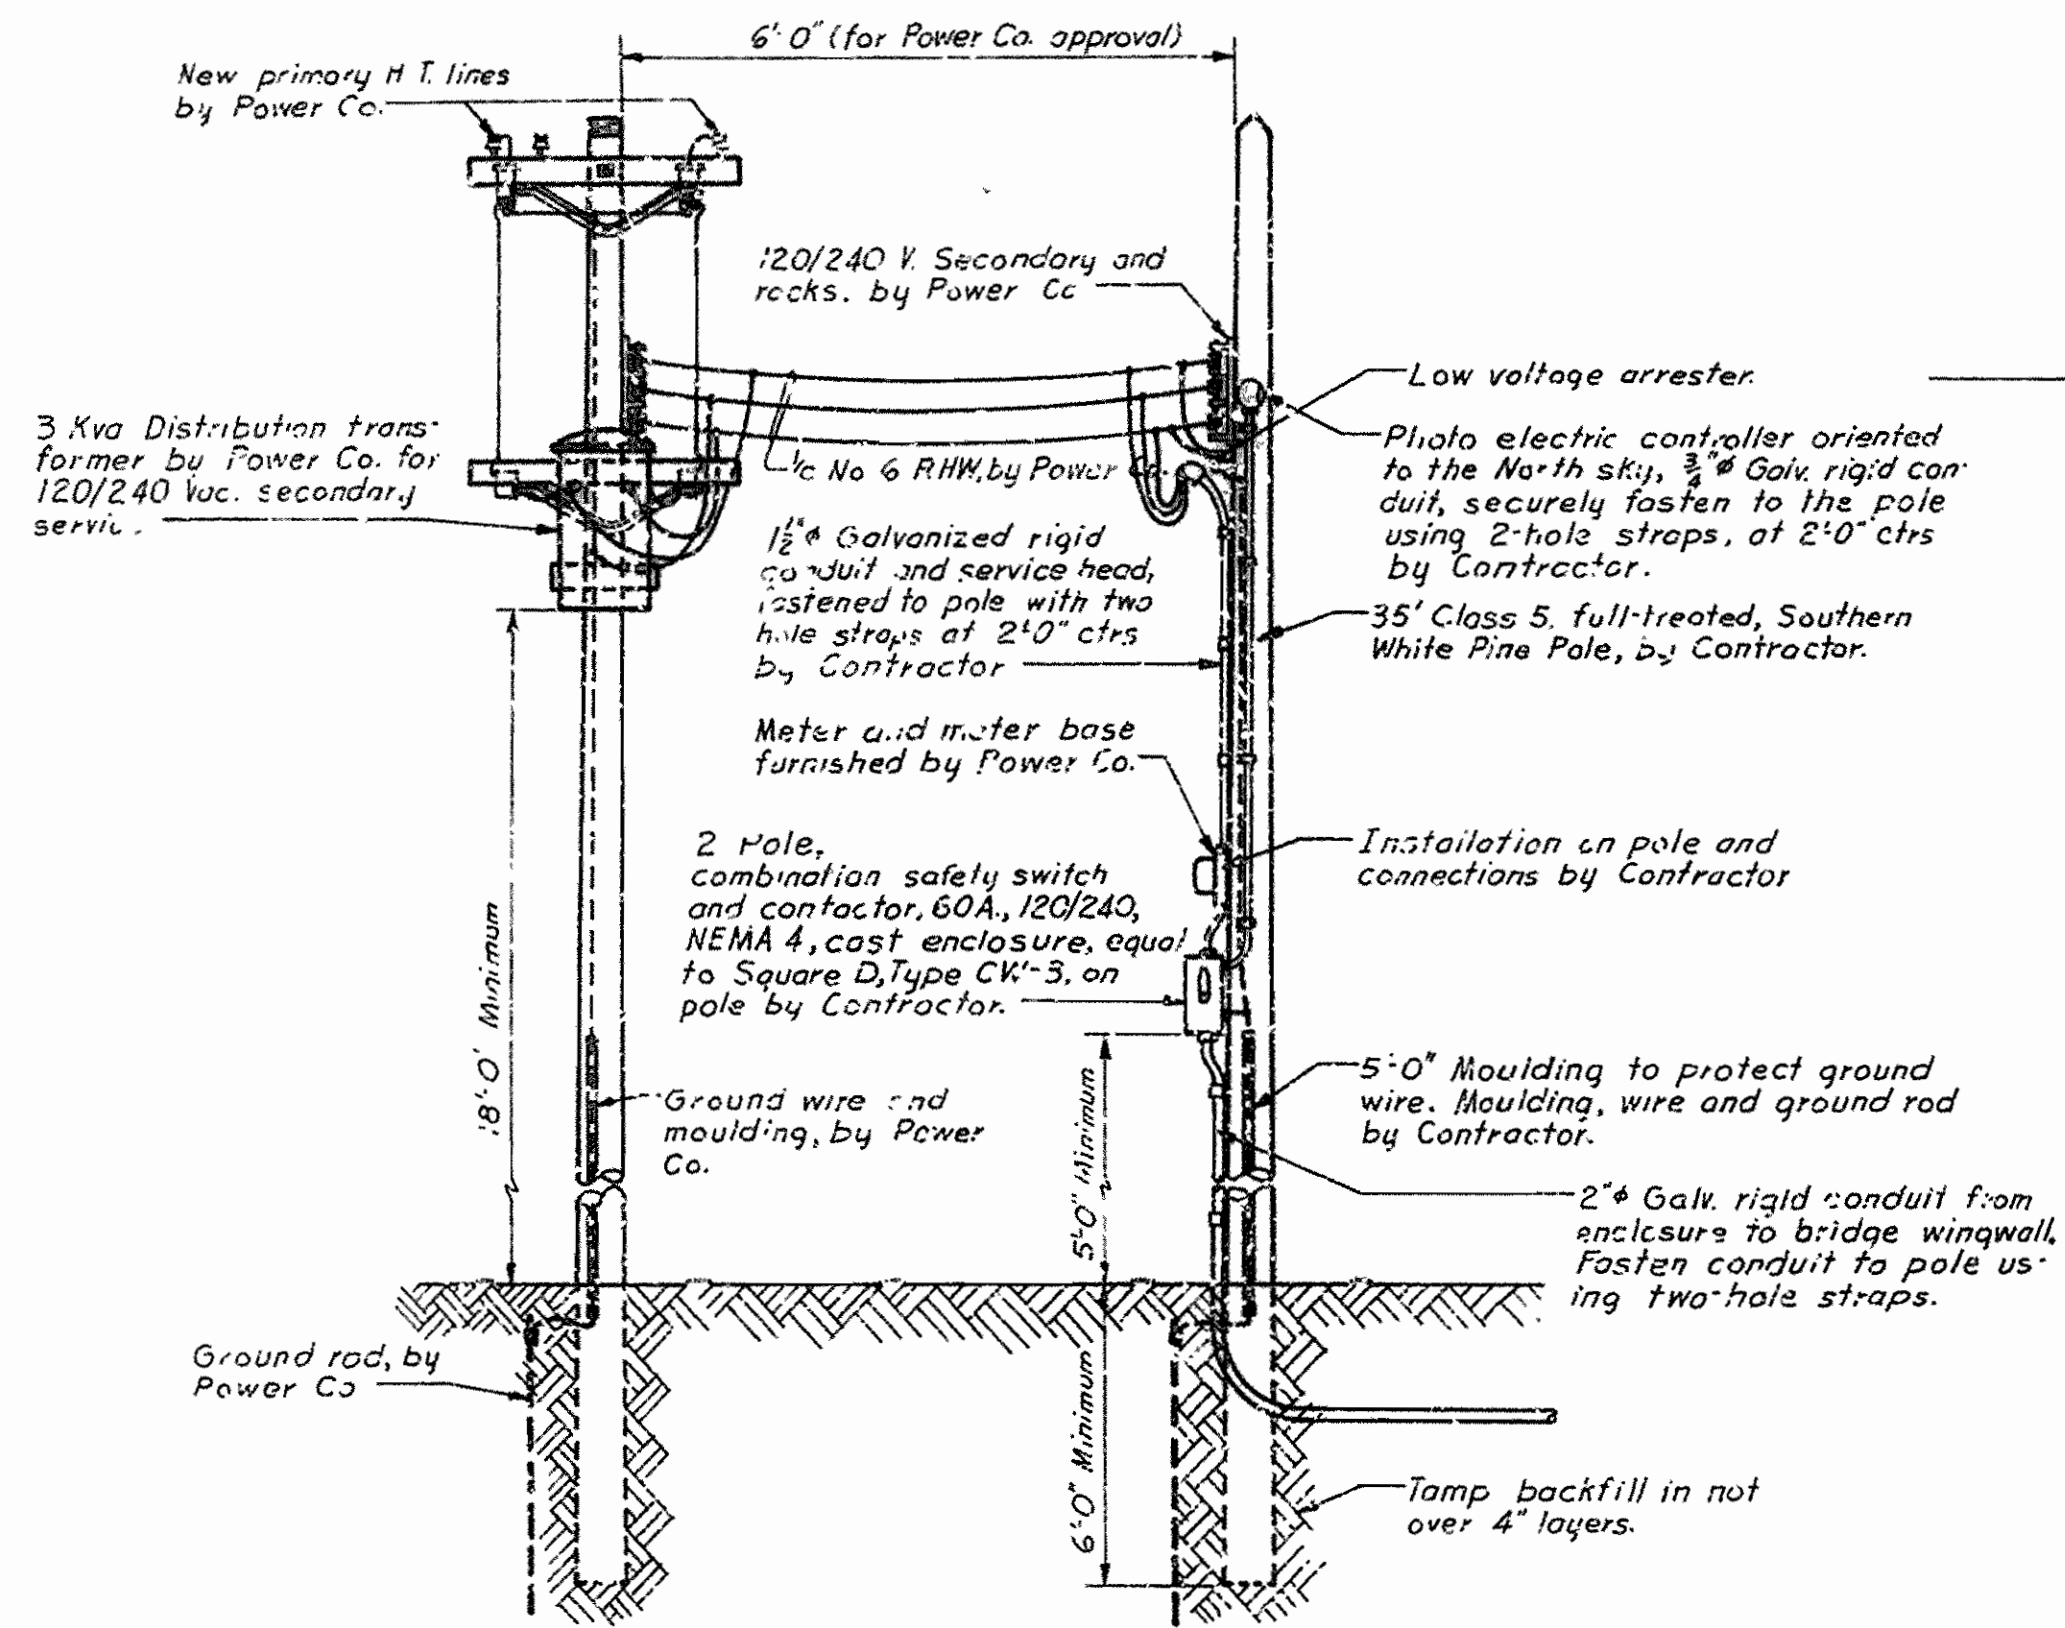 6'-0" (for Power Co. approval)
New primary H T. lines
by Power Co.
120/240 V. Secondary and
racks. by Power Co
Low voltage arrester.
3 Kva Distribution trans-
former by Power Co. for
120/240 Vac. secondary
1/c No 6 RHW, by Power Co.
Photo electric controller oriented
to the North sky, 3/4"ϕ Galv. rigid con-
duit, securely fasten to the pole
using 2-hole straps, at 2'-0" ctrs
by Contractor.
1 1/2"ϕ Galvanized rigid
conduit and service head,
fastened to pole with two
hole straps at 2'-0" ctrs
by Contractor
35' Class 5. full-treated, Southern
White Pine Pole, by Contractor.
Meter and meter base
furnished by Power Co.
2 Pole,
combination safety switch
and contactor, 60A., 120/240,
NEMA 4, cast enclosure, equal
to Square D, Type CW-3, on
pole by Contractor.
Installation on pole and
connections by Contractor
18'-0" Minimum
5'-0" Minimum
Ground wire and
moulding, by Power
Co.
5'-0" Moulding to protect ground
wire. Moulding, wire and ground rod
by Contractor.
2"ϕ Galv. rigid conduit from
enclosure to bridge wingwall.
Fasten conduit to pole us-
ing two-hole straps.
Ground rod, by
Power Co
6'-0" Minimum
Tamp backfill in not
over 4" layers.